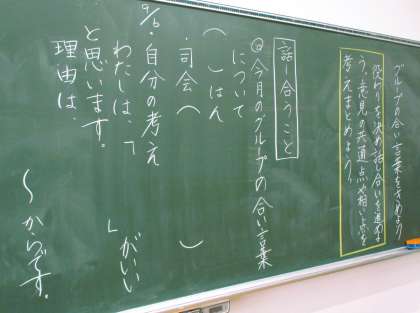 グループの合い言葉をきめよう
役わりを決め話し合いを進めよ
う。意見の共通点や相い点を
考えまとめよう。
話し合うこと
◎今月のグループの合い言葉
について
( )はん
・司会( )
9/6・自分の考え
わたしは、「 」がいい
と思います。
理由は、
〜からです。